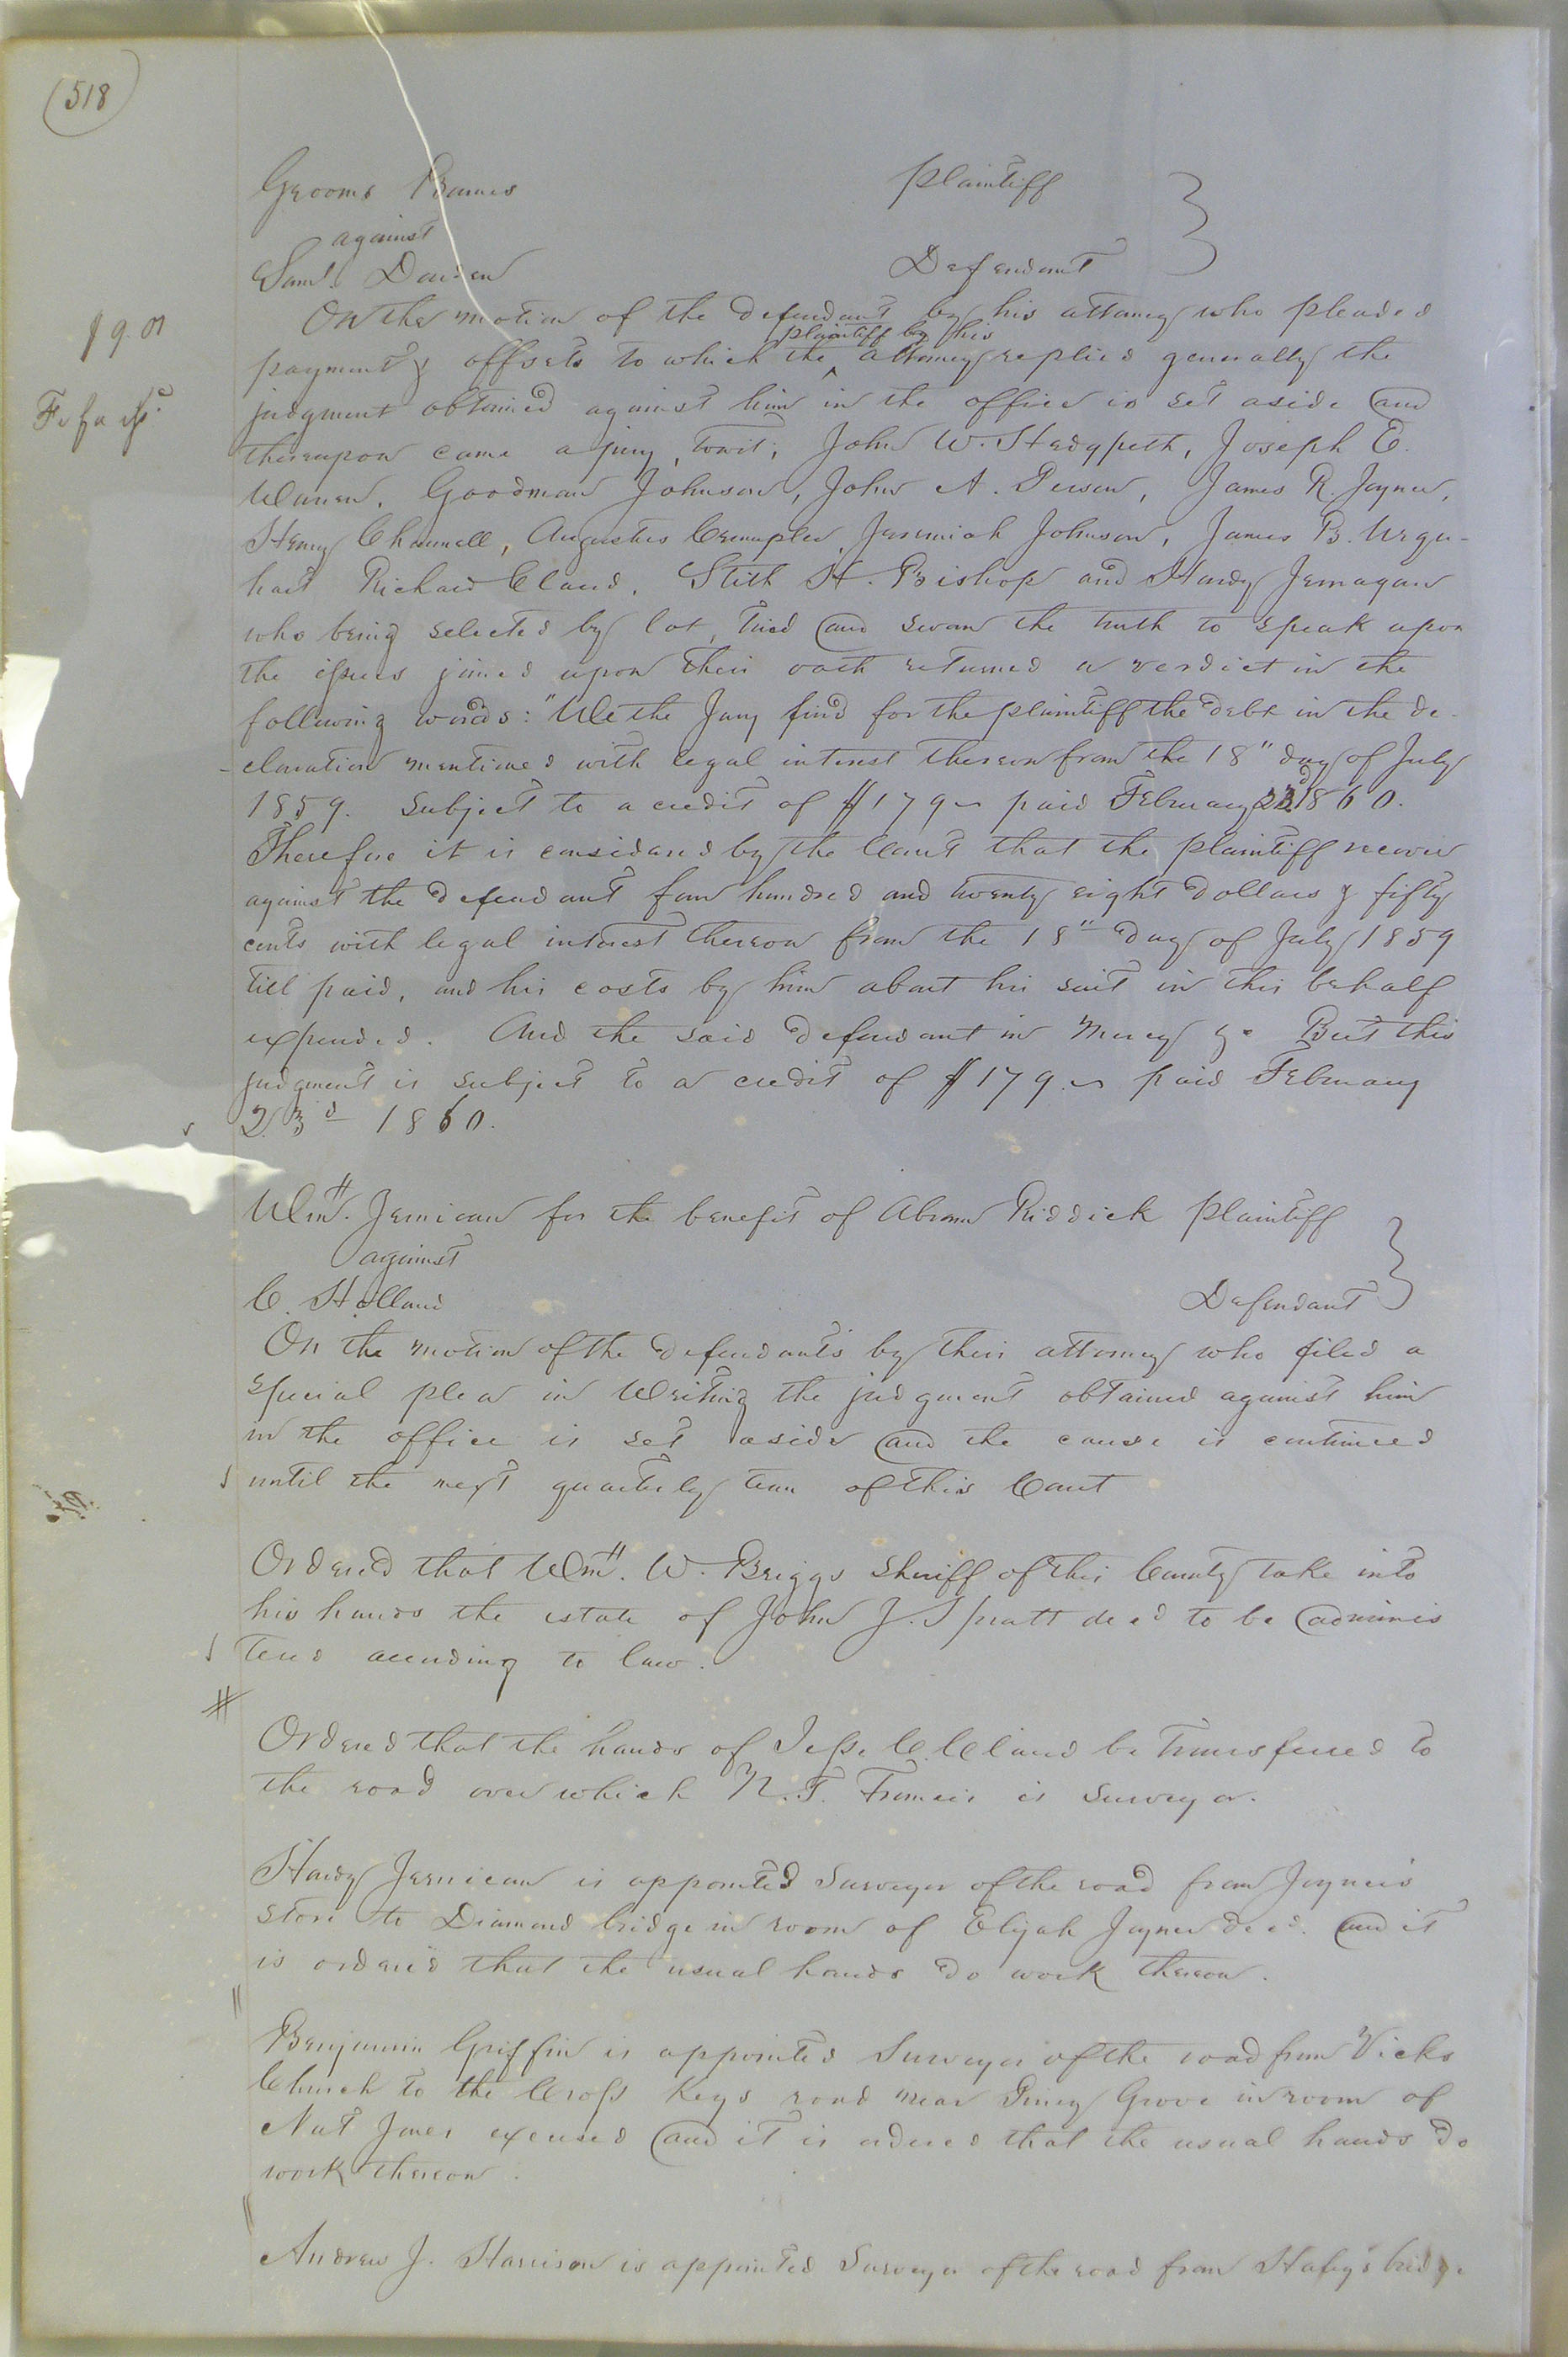 (518)
Grooms Barnes Plaintiff
against
Saml. Darden Defendant
$9.01
Fi fa ifsd.
On the motion of the defendant by his attorney who pleaded
plaintiff by his
payment & offsets to which the ^ attorney replied generally the
judgment obtained against him in the office is set aside and
thereupon came a jury, towit; John W. Hedgpeth, Joseph E.
Warren, Goodman Johnson, John A. Person, James R. Joyner,
Henry Channell, Augustus Crumpler, Jeremiah Johnson, James B. Urqu-
hart Richard Claud, Stith H. Bishop and Hardy Jernagan
who being selected by lot, tried and sworn the truth to speak upon
the issues joined upon their oath returned a verdict in the
following words: "We the Jury find for the plaintiff the debt in the de-
-claration mentioned with legal interest thereon from the 18" day of July
1859. Subject to a credit of $179 paid February 23d 1860.
Therefore it is considered by the Court that the plaintiff recover
against the defendant four hundred and twenty eight Dollars & fifty
cents with legal interest thereon from the 18" day of July 1859
till paid, and his costs by him about his suit in this behalf
expended. And the said defendant in Mercy &c But this
judgment is subject to a credit of $179 paid February
23d 1860.
Wm. Jernican for the benefit of Abram Riddick Plaintiff
against
C. Holland Defendant
On the motion of the defendants by their attorney who filed a
special plea in Writing the judgment obtained against him
in the office is set aside and the cause is continued
until the next quarterly term of this Court
Ordered that Wm. W. Briggs Sheriff of this County take into
his hands the estate of John J. Spratt decd to be adminis
tered according to law.
#
Ordered that the hands of Jesse C. Claud be transferred to
the road over which N. T. Francis is Surveyor.
Hardy Jernican is appointed Surveyor of the road from Joyner's
store to Diamond bridge in room of Elijah Joyner decd. and it
is ordered that the usual hands do work thereon.
Benjamin Griffin is appointed Surveyor of the road from Vicks
Church to the Cross Keys road near Piney Grove in room of
Nat Jones excused and it is ordered that the usual hands do
work thereon.
Andrew J. Harrison is appointed Surveyor of the road from bridge